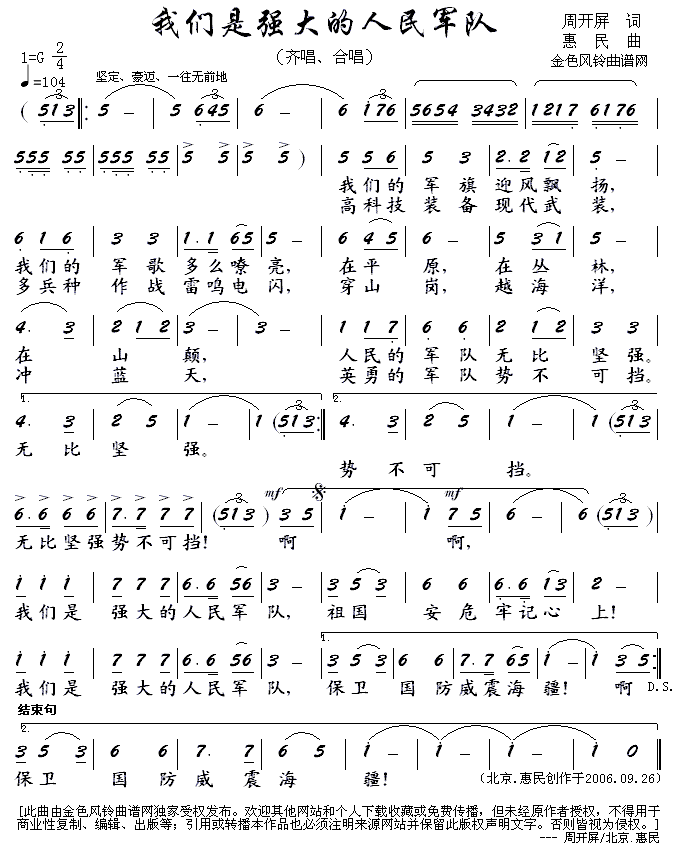 我们是强大的人民军队
（齐唱、合唱）
周开屏 词
惠民 曲
金色风铃曲谱网
1=G 2/4
♩=104
坚定、豪迈、一往无前地
( 513 ‖: 5 – | 5 645 | 6 – | 6 176 | 5654 3432 | 1217 6176 |
555 55 | 555 55 | 5 5 | 5 5 ) | 5 5 6 | 5 3 | 2.2 12 | 5 – |
我们的 军 旗 迎风飘 扬，
高科技 装 备 现代武 装，
6 1 6 | 3 3 | 1.1 65 | 5 – | 6 4 5 | 6 – | 5 31 | 5 – |
我们的 军 歌 多么嘹 亮， 在平 原， 在 丛 林，
多兵种 作 战 雷鸣电 闪， 穿山 岗， 越 海 洋，
4. 3 | 2 1 2 | 3 – | 3 – | 1 1 7 | 6 6 | 2 2 | 3 3 |
在 山 颠， 人民的 军 队 无 比 坚 强。
冲 蓝 天， 英勇的 军 队 势 不 可 挡。
1. 2.
4. 3 | 2 5 | 1 – | 1 (513 :‖ 4. 3 | 2 5 | 1 – | 1 (513 |
无 比 坚 强。
势 不 可 挡。
mf mf
6.6 6 6 | 7.7 7 7 | (513 ) 3 5 | 1 – | 1 7 5 | 6 – | 6 (513 |
无比坚强势不可挡！ 啊 啊，
1 1 1 | 7 7 7 | 6.6 56 | 3 – | 3 5 3 | 6 6 | 6.6 13 | 2 – |
我们是 强大的人民军 队， 祖国 安 危 牢记心 上！
1.
1 1 1 | 7 7 7 | 6.6 56 | 3 – | 3 5 3 | 6 6 | 7.7 65 | 1 – | 1 3 5 :‖
我们是 强大的人民军 队， 保卫 国 防威震海 疆！ 啊 D.S.
结束句
2.
3 5 3 | 6 6 | 7. 7 | 6 5 | 1 – | 1 – | 1 – | 1 0 ‖
保卫 国 防 威 震 海 疆！
（北京.惠民创作于2006.09.26）
[此曲由金色风铃曲谱网独家受权发布。欢迎其他网站和个人下载收藏或免费传播，但未经原作者授权，不得用于
商业性复制、编辑、出版等；引用或转播本作品也必须注明来源网站并保留此版权声明文字。否则皆视为侵权。]
--- 周开屏/北京.惠民